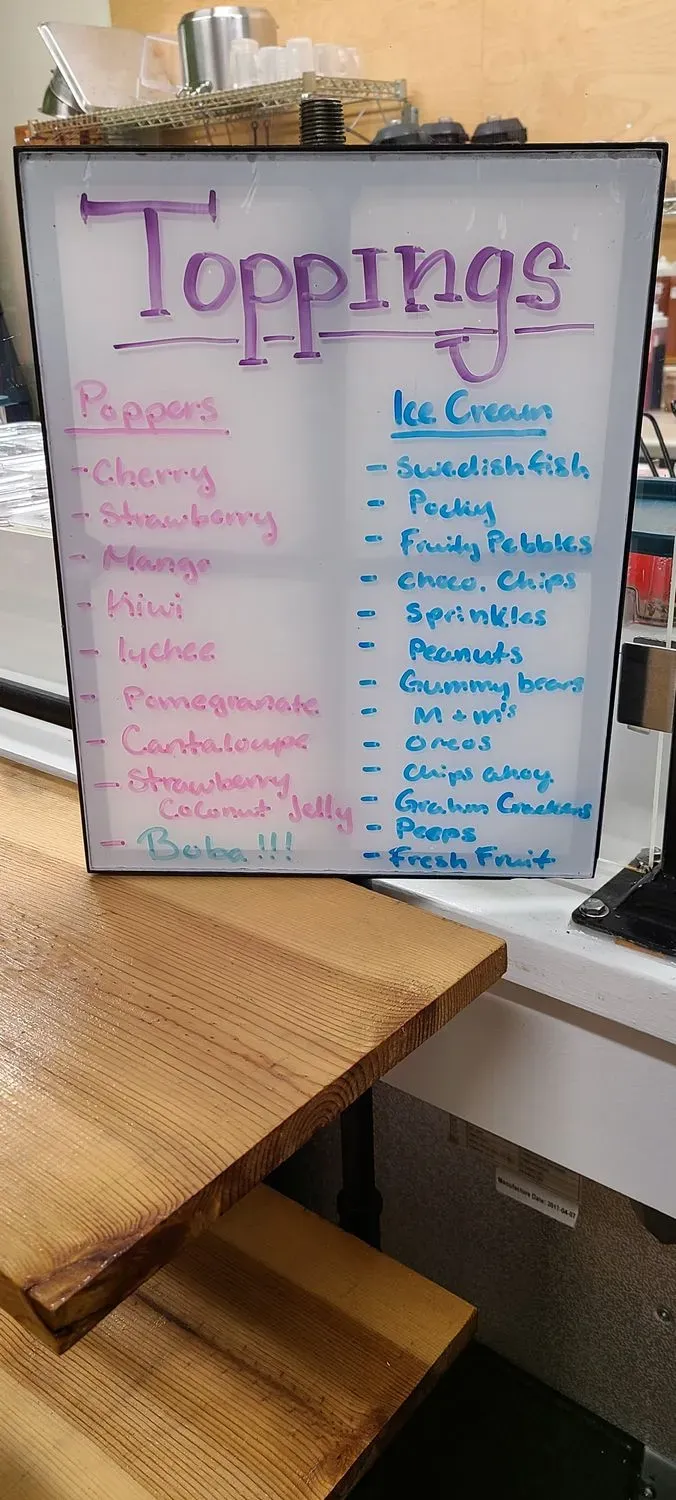 Toppings
Poppers
- Cherry
- Strawberry
- Mango
- Kiwi
- lychee
- Pomegranate
- Cantaloupe
- Strawberry
Coconut Jelly
- Boba!!!
Ice Cream
- Swedish fish
- Pocky
- Fruity Pebbles
- choco. Chips
- Sprinkles
- Peanuts
- Gummy bears
- M + m's
- Oreos
- chips ahoy
- Graham Crackers
- Peeps
- Fresh Fruit
Manufacture Date: 2017-04-07